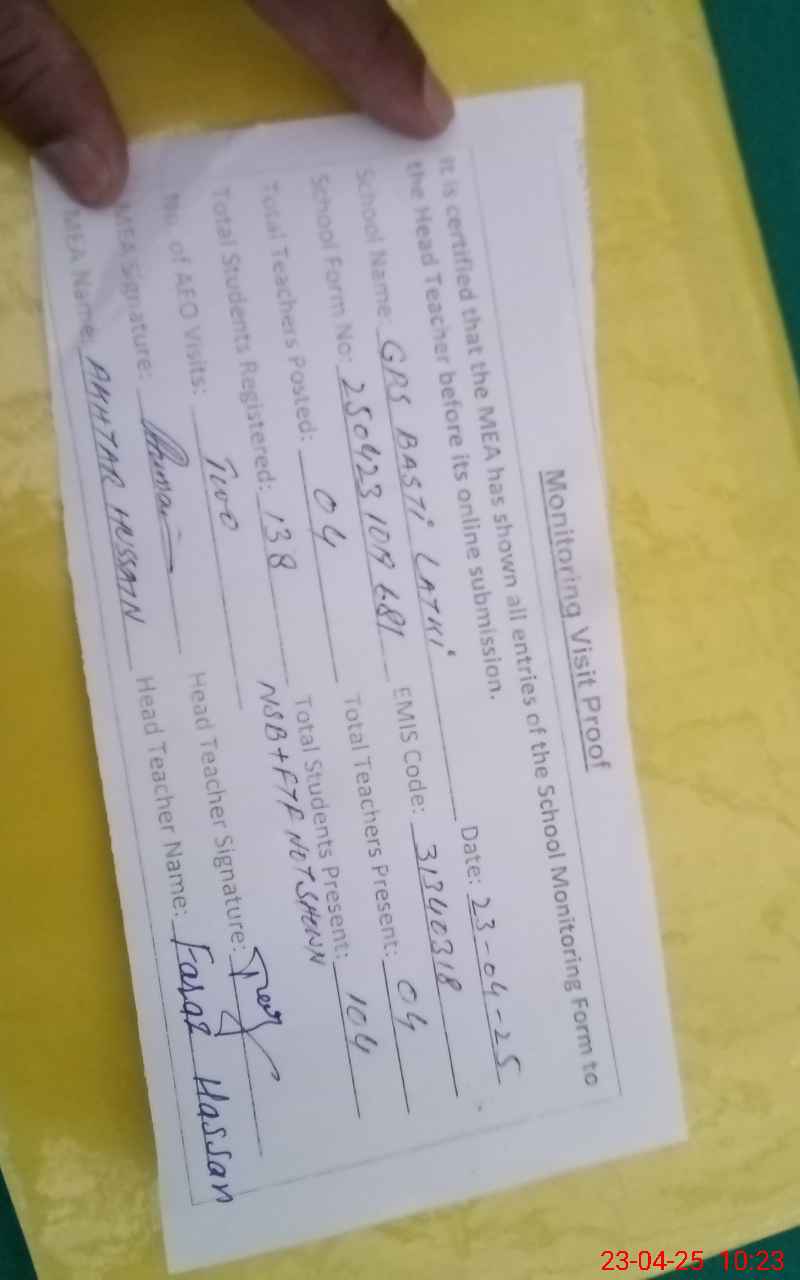 Monitoring Visit Proof
It is certified that the MEA has shown all entries of the School Monitoring Form to
the Head Teacher before its online submission.
Date: 23-04-25
School Name GPS BASTI LATKI
School Form No: 250423109681 EMIS Code: 31340318
Total Teachers Posted: 04 Total Teachers Present: 04
Total Students Registered: 138 Total Students Present: 104
NSB+FTF NOT SHOWN
No. of AEO Visits: Two
MEA Signature: Head Teacher Signature:
MEA Name: AKHTAR HUSSAIN Head Teacher Name: Faraz Hassan
23-04-25 10:23